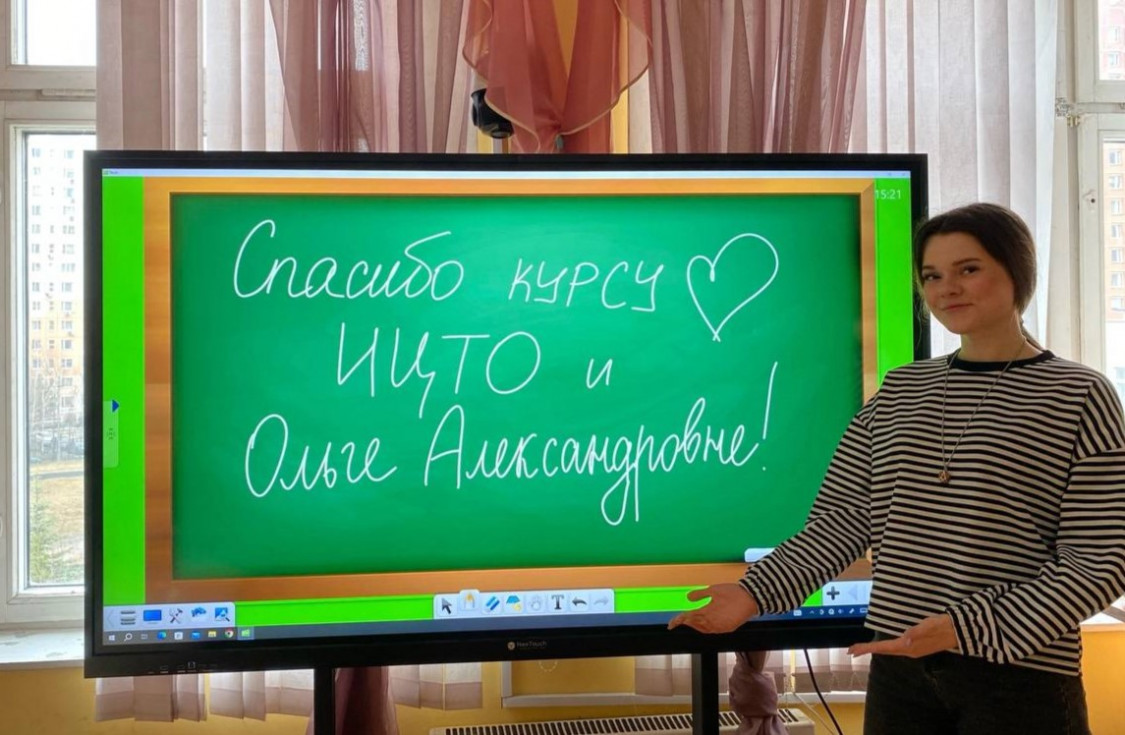 15:21
Спасибо курсу
ИЦТО и
Ольге Александровне!
T
NexTouch